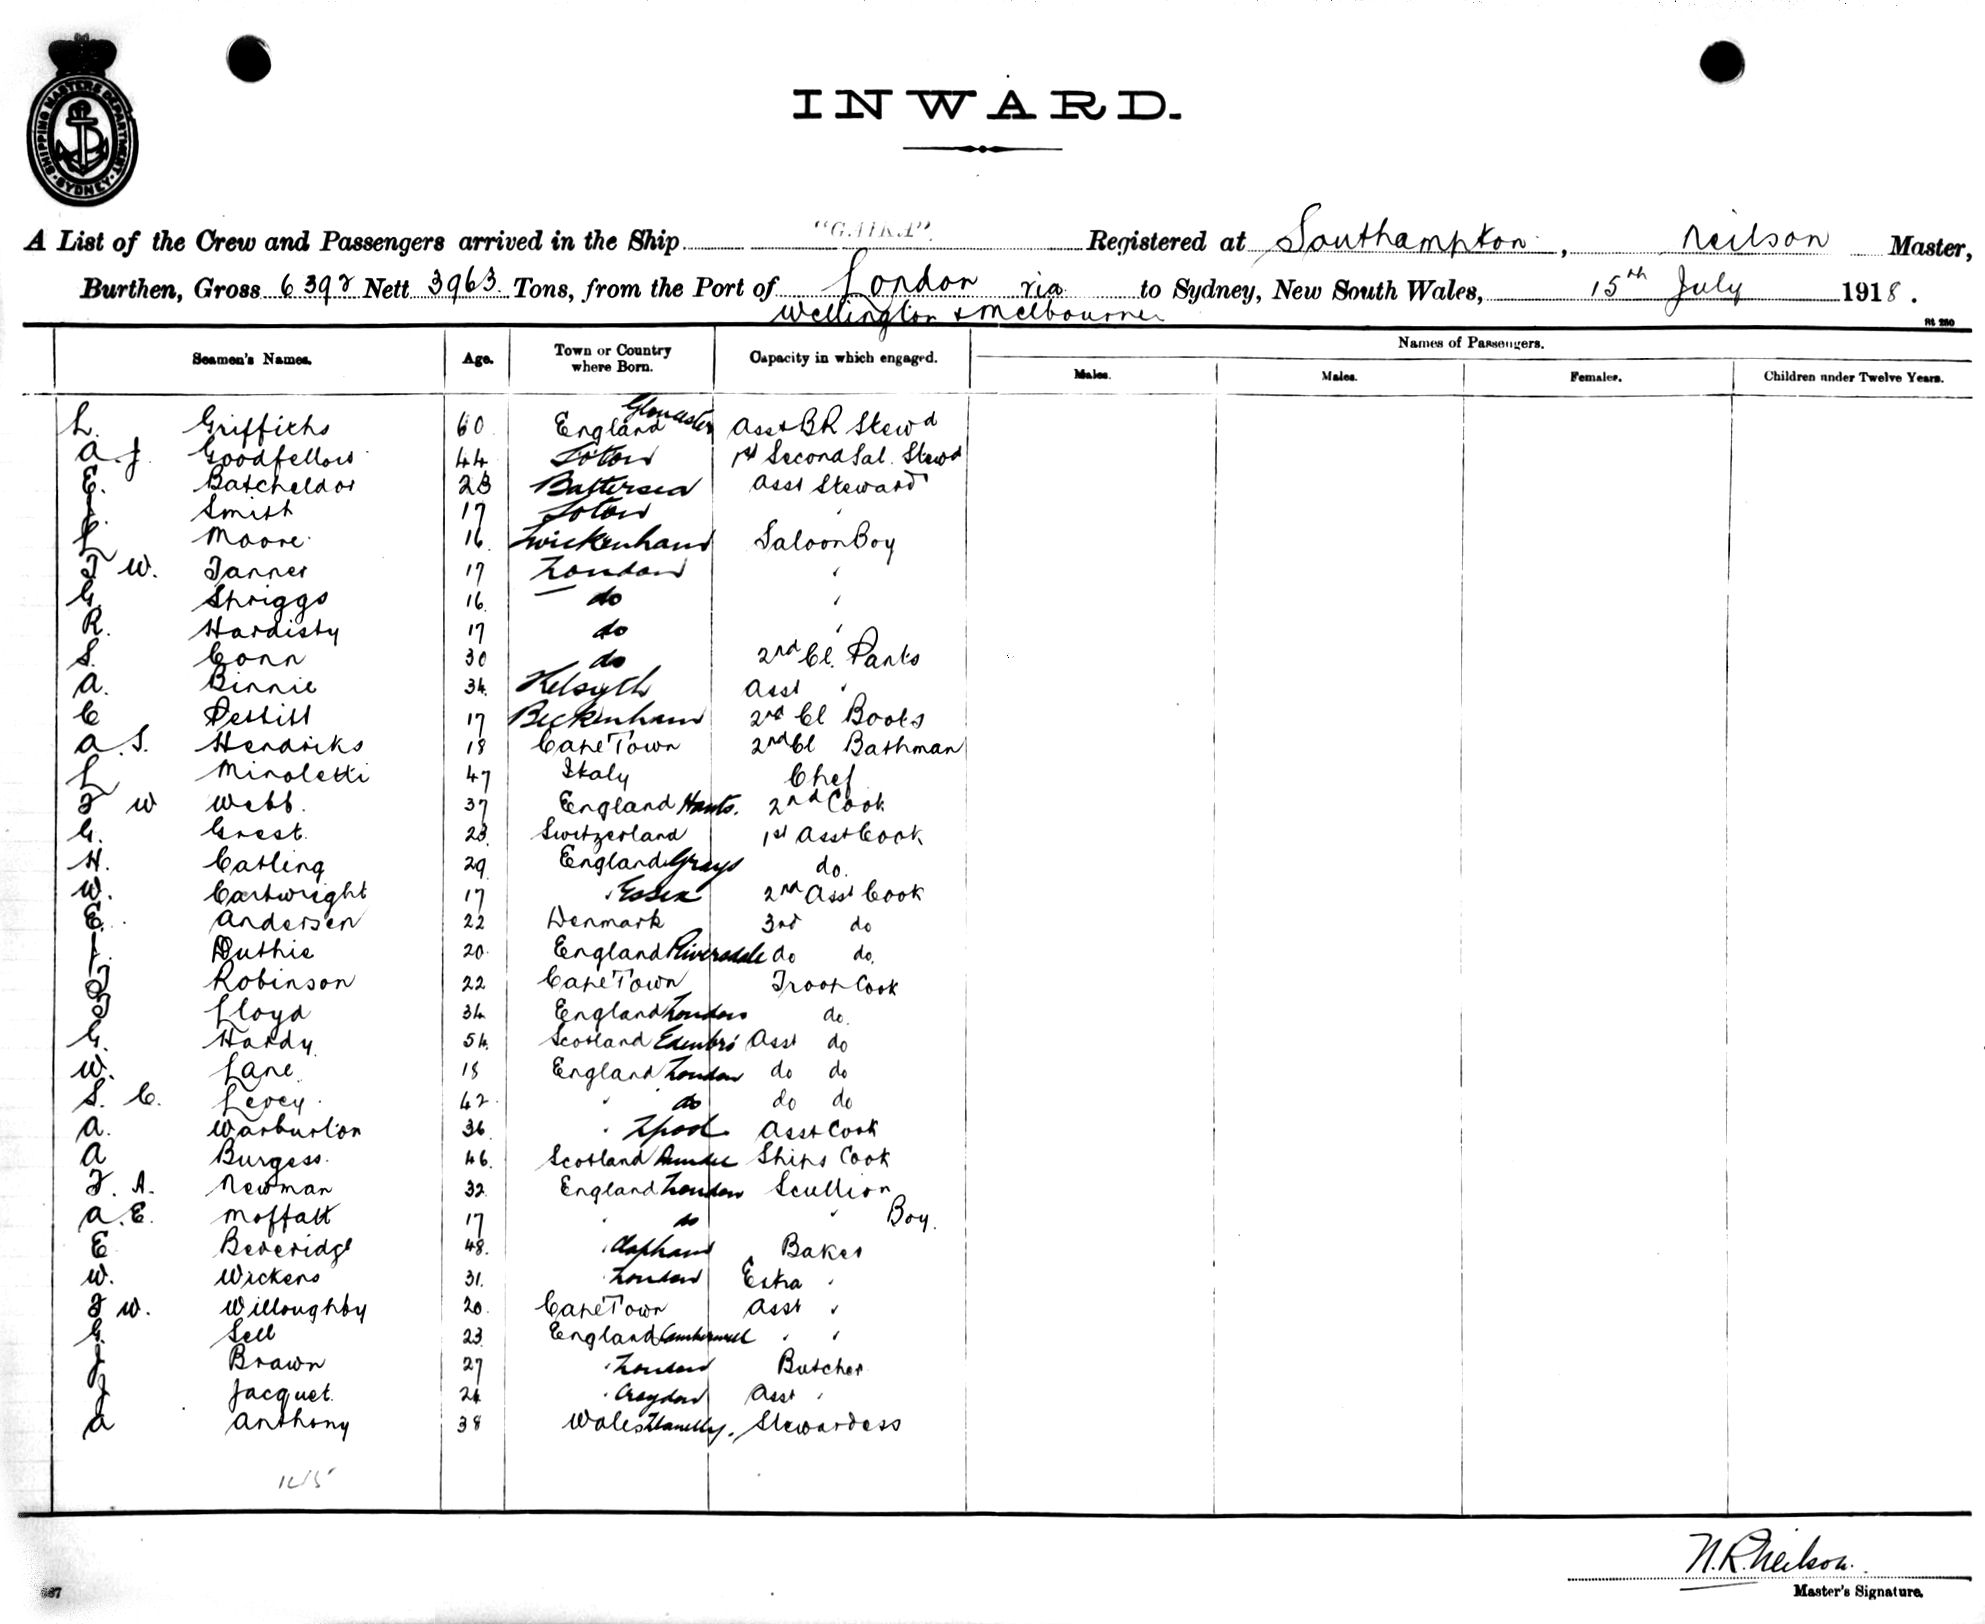 SHIPPING MASTERS DEPARTMENT · SYDNEY ·
INWARD.
A List of the Crew and Passengers arrived in the Ship "GAIKA". Registered at Southampton, Neilson Master,
Burthen, Gross 6392 Nett 3963 Tons, from the Port of London via to Sydney, New South Wales, 15th July 1918.
Wellington & Melbourne
Seamen's Names. Age. Town or Country where Born. Capacity in which engaged. Names of Passengers.
Males. Males. Females. Children under Twelve Years.
L. Griffiths 60 England Gloucester Asst BR Stewd
A. J. Goodfellow 44 Soton 1st Second Sal. Stewd
E. Batcheldor 23 Battersea Asst Steward
Smith 17 Soton "
Moore 16 Twickenham Saloon Boy
F W. Tanner 17 London "
G. Spriggs 16 do "
R. Hardisty 17 do "
S. Conn 30 do 2nd Cl. Pants
A. Binnie 34 Kelsyth Asst "
C Pettitt 17 Beckenham 2nd Cl Boots
A. S. Hendriks 18 Cape Town 2nd Cl Bathman
L Minoletti 47 Italy Chef
F W Webb. 37 England Hants. 2nd Cook
G. Grest. 23 Switzerland 1st Asst Cook
H. Catling 29 England Grays do.
W. Cartwright 17 " Essex 2nd Asst Cook
E. Andersen 22 Denmark 3rd do
Duthie 20 England Riversdale do do.
Robinson 22 Cape Town Troop Cook
Lloyd 34 England London do.
G. Hardy 54 Scotland Edinbro' Asst do
W. Lane 18 England London do do
S. C. Levey 42 " do do do
A. Warburton 36 " Lpool Asst Cook
A Burgess. 46 Scotland Dundee Ships Cook
F. A. Newman 32 England London Scullion
A. E. Moffatt 17 " do " Boy.
E Beveridge 48 " Clapham Baker
W. Wickens 31 " London Extra "
F W. Willoughby 20 Cape Town Asst "
G. Sell 23 England Camberwell " "
J Brawn 27 " London Butcher
J Jacquet 24 " Croydon Asst "
A Anthony 38 Wales Llanelly. Stewardess
N. R. Neilson.
Master's Signature.